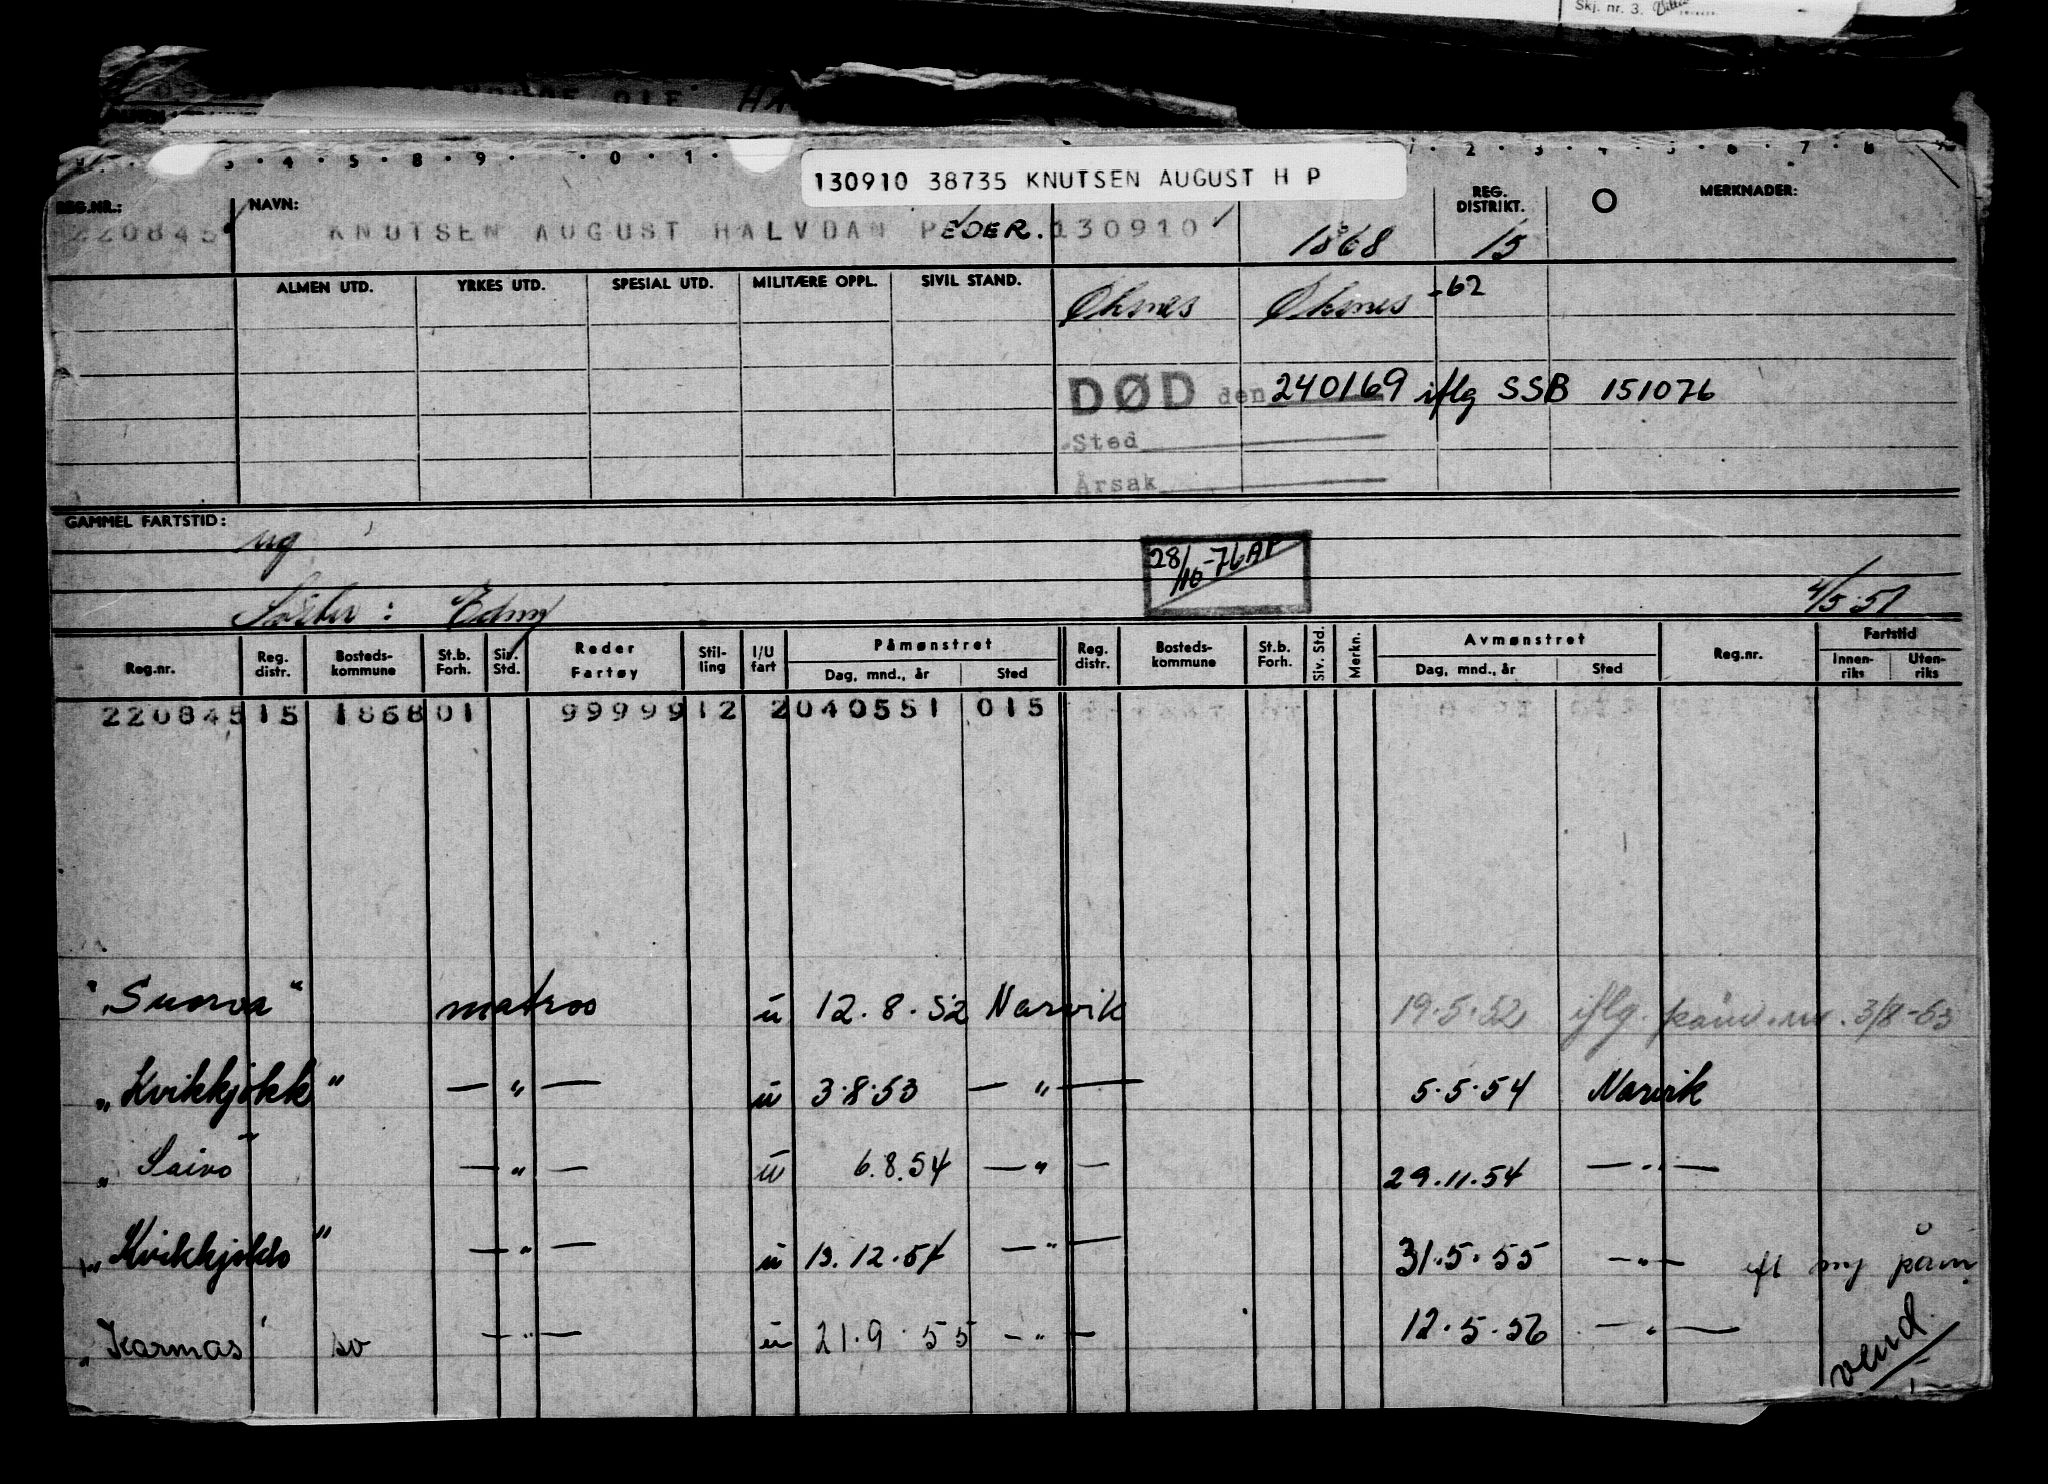 Skj. nr. 3.
130910 38735 KNUTSEN AUGUST H P
REG.NR.: NAVN: REG. DISTRIKT. MERKNADER:
220845 KNUTSEN AUGUST HALVDAN PEDER. 130910 1868 15
ALMEN UTD. YRKES UTD. SPESIAL UTD. MILITÆRE OPPL. SIVIL STAND. Øksnes Øksnes -62
DØD den 240169 iflg SSB 151076
Sted
Årsak
GAMMEL FARTSTID:
ug
28/10-76 AP
Søster : Edny 4/5 51
Reg.nr. Reg. distr. Bosteds-kommune St.b. Forh. Siv. Std. Reder Fartøy Stil-ling I/U fart Påmønstret Dag, mnd., år Sted Reg. distr. Bosteds-kommune St.b. Forh. Siv. Std. Merkn. Avmønstret Dag, mnd., år Sted Reg.nr. Fartstid Innen-riks Uten-riks
220845 15 1868 01 99999 12 2 040551 015
"Suorva" matros u 12.8.52 Narvik 19.5.52 iflg. påm. 3/8-53
"Kvikkjokk" — " — u 3.8.53 — " — 5.5.54 Narvik
" Saivo — " — u 6.8.54 — " — 29.11.54 — " —
"Kvikkjokk" — " — u 13.12.54 — " — 31.5.55 — " — eft ny påm
"Karmas' sv — " — u 21.9.55 — " — 12.5.56 — " —
vend.